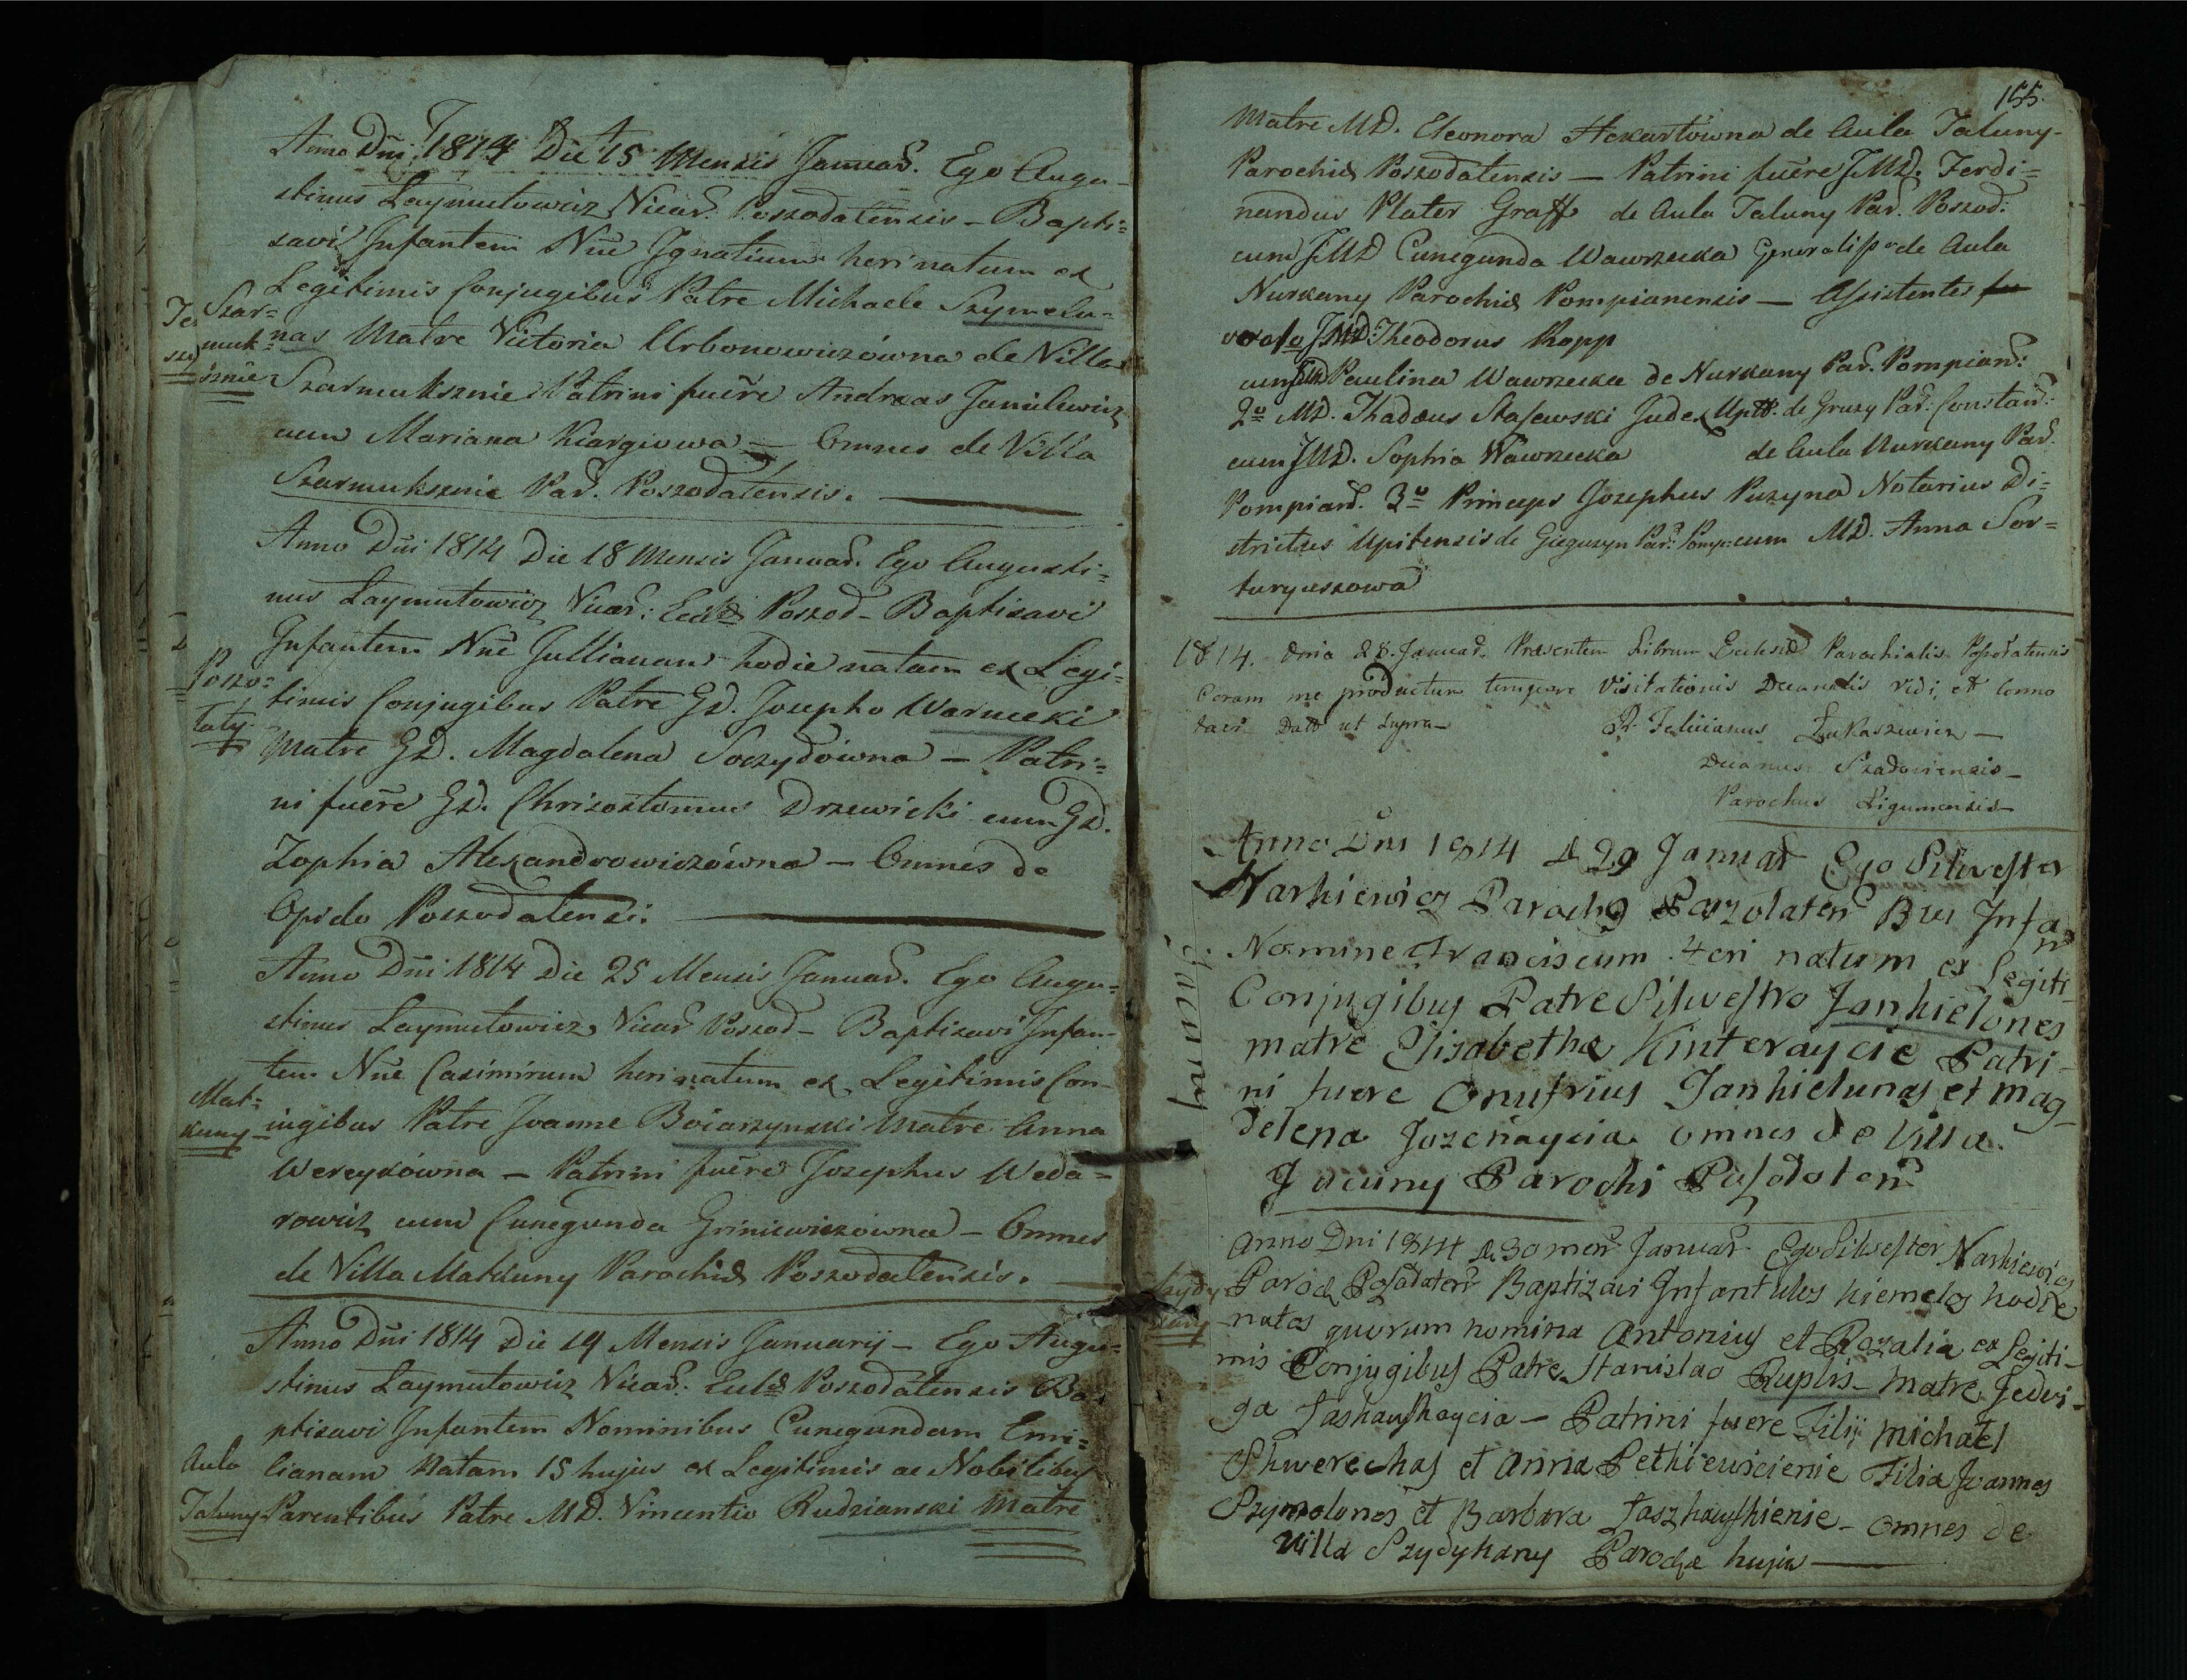 Anno Dñi 1814 Die 15 Mensis Januar. Ego Augu-
stinus Laymutowicz Vicar. Poszodatensis - Bapti=
zavi Infantem Nñe Ignatium heri natum ex
Legitimis Conjugibus Patre Michaele Szymelu=
Szar=
muk=
sznie
nas Matre Victoria Urbonowiczówna de Villa
Szarmuksznie Patrini fuere Andreas Janulewicz
cum Mariana Kiargiowa — Omnes de Villa
Szarmuksznie Par. Poszodatensis.
Anno Dñi 1814 Die 18 Mensis Januar. Ego Augusti=
nus Laymutowicz Vicar: Eccl Poszod - Baptisavi
Infantem Nñe Jullianam hodie natam ex Legi=
Poszo=
laty
timis Conjugibus Patre GD. Josepho Warnecki
Matre GD. Magdalena Soczydówna — Patri=
ni fuere GD. Chrizostomus Drzewicki cum GD.
Zophia Alexandrowiczówna — Omnes de
Opido Poszodatensi.
Anno Dñi 1814 Die 25 Mensis Januar. Ego Augu=
stinus Laymutowicz Vicar Poszod - Baptisavi Infan-
tem Nñe Casimirum heri natum ex Legitimis Con-
Mat=
kuny
iugibus Patre Joanne Boiarzynski Matre Anna
Wereykówna — Patrini fuere Josephus Weda=
rowicz cum Cunegunda Griniewiczówna — Omnes
de Villa Matkuny Parochiæ Poszodatensis.
Anno Dñi 1814 Die 19 Mensis Januarij — Ego Augu=
stinus Laymutowicz Vicar. Eccl Poszodatensis Ba
ptisavi Infantem Nominibus Cunegundam Emi=
Aula
Taluny
lianam Natam 15 hujus ex Legitimis ac Nobilibus
Parentibus Patre MD. Vincentio Rudzianski Matre
155.
Matre MD. Eleonora Hekartówna de Aula Taluny-
Parochiæ Poszodatensis — Patrini fuere JMD. Ferdi=
nandus Plater Graff de Aula Taluny Par. Poszod:
cum JMD Cunegunda Wawrzecka de Aula
Nurkany Parochiæ Pompianensis — Assistentes
JMD. Theodorus Ropp
cum Paulina Wawrzecka de Nurkany Par. Pompian:
2º MD. Thadæus Stasewski Judex Upit. de Gruzy Par: Constan:
cum JMD. Sophia Wawrzecka de Aula Nurkany Par.
Pompian. 3º Princeps Josephus Puzyna Notarius Di=
strictus Upitensis de Gieguzyn Par: Pomp: cum MD. Anna Sor=
turyuszowa
1814. Dnia 28. Januar. Præsentem Librum Ecclesiæ Parochialis
Coram me productum tempore Visitationis Decanalis vidi, et Conno
tavi Datt ut Supra—
P. Felicianus Łukaszewicz —
Decanus Szadoviensis—
Parochus Ligumensis—
Anno Dni 1814 d 29 Januar Ego Silwester
Narkiewicz Paroch9 Poszolaten Bvi Infan
Nomine Franciscum Heri natum ex Legiti-
Jacuny
Conjugibus Patre Silwestro Jankielones
matre Elisabetha Kinteraycie Patri-
ni fuere Onufrius Jankielunas et Mag-
delena Jozenaycia omnes de Villa.
Jacuny Parochi Posodaten
Anno Dni 1814 d. 30 men Januar Ego Silwester Narkiewicz
Paroch Posodaten Baptizavi Infantulos hiemelos hodie
natos quorum nomina Antonius et Rozalia ex Legiti-
mis Conjugibus Patre Stanislao Ruplis— Matre Jedvi-
ga Jaskauskaycia — Patrini fuere Filij Michael
Skwereckas et Anna Petkiewicienie Filia Joannes
Szymolonos et Barbara Jaszkauskienie — omnes de
Villa Szydykany Parochæ hujus